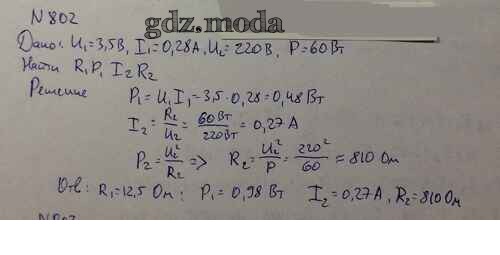 N 802
gdz.moda
Дано: U₁=3,5В, I₁=0,28А, U₂=220В, P=60Вт
Найти R₁ P₁ I₂ R₂
Решение P₁=U₁I₁=3,5·0,28=0,48 Вт
I₂ = R₂/U₂ = 60Вт/220Вт = 0,27 А
P₂ = U₂²/R₂ => R₂ = U₂²/P = 220²/60 ≈ 810 Ом
Отв: R₁=12,5 Ом; P₁=0,98 Вт I₂=0,27А, R₂=810 Ом